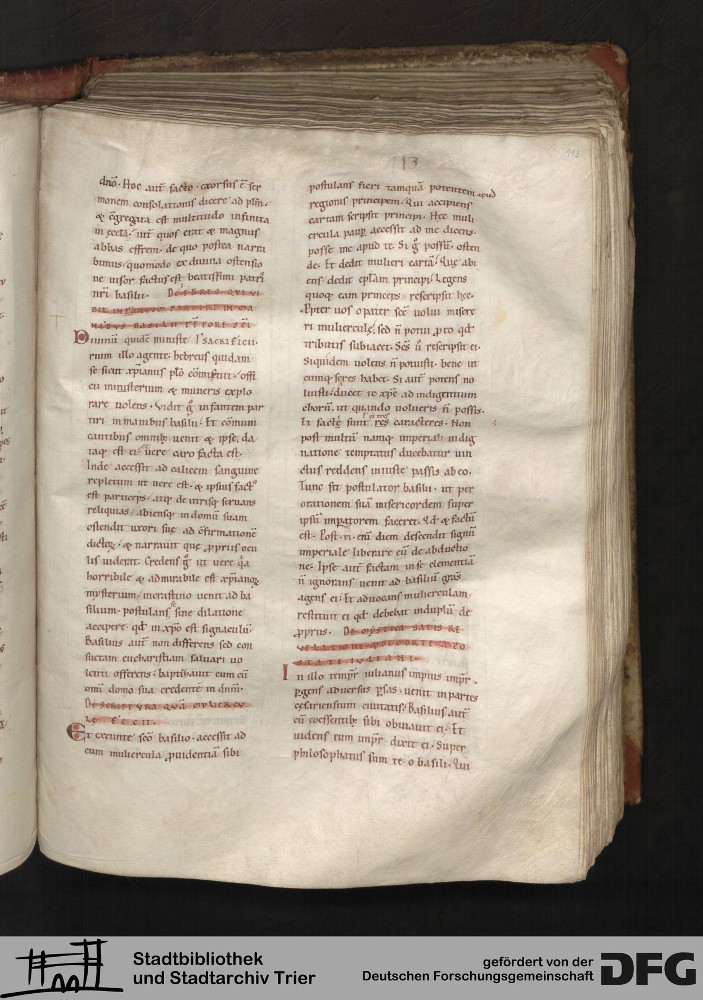 113
113
dnō. Hoc aut̄ facto. exorsus ē ser
monem consolationis dicere ad plm̄.
& c̄gregata est multitudo infinita
in eccla. int̄ quos erat & magnus
abbas effrem. de quo postea narra
bimus. quomodo ex diuina ostensio
ne uisor factus est beatissimi patris
nr̄i basilii. De ebreo qui vi
dit infantem partiri in ma
nibus basilii
Diuinū quidē ministe
rium illo agente. hebreus quidam
se sicut xp̄ianus plo cōmiscuit. offi
cii ministerium & muneris explo
rare uolens. Vidit g̊ infantem par
tiri in manibus basilii. Et cōmuni
cantibus omnib; uenit & ipse. da
taq; est ei uere caro facta est.
Inde accessit ad calicem sanguine
repletum ut uere est. & ipsius fact̉
est particeps. atq; de utrisq; seruans
reliquias. abiensq; in domū suam
ostendit uxori suę ad c̄firmationē
dictoꝝ. & narrauit quę ꝓpriis ocu
lis uiderat. Credens g̊ ut uere qa
horribile & admirabile est xp̄ianoꝝ
mysterium. in crastino uenit ad ba
silium. postulans sine dilatione
accipere. qd̄ in xp̄o est signaculū.
Basilius aut̄ non differens sed con
suetam eucharistiam saluari uo
lenti offerens. baptizauit eum cū
omi domo sua credente in dnm̄.
De scriptura quā muliercu
le fecit.
Et exeunte scō basilio. accessit ad
eum muliercula ꝓuidentiā sibi
postulans fieri tamquā potentem apud
regionis principem. Qui accipiens
cartam scripsit principi. Hec muli
ercula paup̄. accessit ad me dicens.
posse me apud te. Si g̊ possū. osten
de. Et dedit mulieri cartā. Que abi
ens dedit epl̄am principi. Legens
quoq; eam princeps. rescripsit hęc.
Ꝓpter uos o pater scē uolui misere
ri mulierculę. sed n̄ potui ꝓ eo qd̄
tributis subiacet. Scs̄ ū rescripsit ei.
Siquidem uolens n̄ potuisti. bene ut
cumq; se res habet. Si aut̄ potens no
luisti. ducet te xp̄c ad indigentium
chorū. ut quando uolueris n̄ possis.
Et factę sunt res caracteres. Non
post multū namq; imperiali indig
natione temptatus ducebatur uin
ctus reddens iniuste passis ab eo.
Tunc fit postulator basilii. ut per
orationem suā misericordem super
ipsū imp̄atorem faceret. Qd̄ & factū
est. Post .vi. enī diem descendit signū
imperiale liberare eū de abductio
ne. Ipse aut̄ factam in se clementiā
n̄ ignorans uenit ad basiliū gr̄as
agens ei. Et aduocans mulierculam
restituit ei qd̄ debebat in duplū de
ꝓpriis. De mystica satis re
velatione
In illo temp̄r iulianus impius imp̄r.
ꝑgens aduersus ꝑsas. uenit in partes
cęsariensium ciuitatis. Basilius aut̄
cū coessentib; sibi obuiauit ei. Et
uidens eum imp̄r dixit ei. Super
philosophatus sum te o basili. Qui
Stadtbibliothek
und Stadtarchiv Trier
gefördert von der
Deutschen Forschungsgemeinschaft
DFG